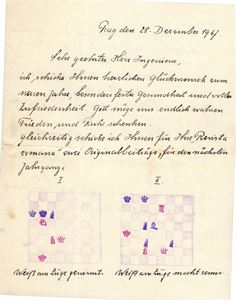 Prag den 28. Dezember 1947
Sehr geehrter Herr Ingenieur,
ich schicke Ihnen herzlichen Glückwunsch zum
neuen Jahre, besonders feste Gesundheit und volle
Zufriedenheit. Gott möge uns endlich wahren
Frieden, und Ruhe schenken.
Gleichzeitig schicke ich Ihnen für Ihre Revista
romana zwei Originalbeiträge, für den nächsten
Jahrgang.
I.
II.
Weiß am Zuge gewinnt.
Weiß am Zuge macht remis.